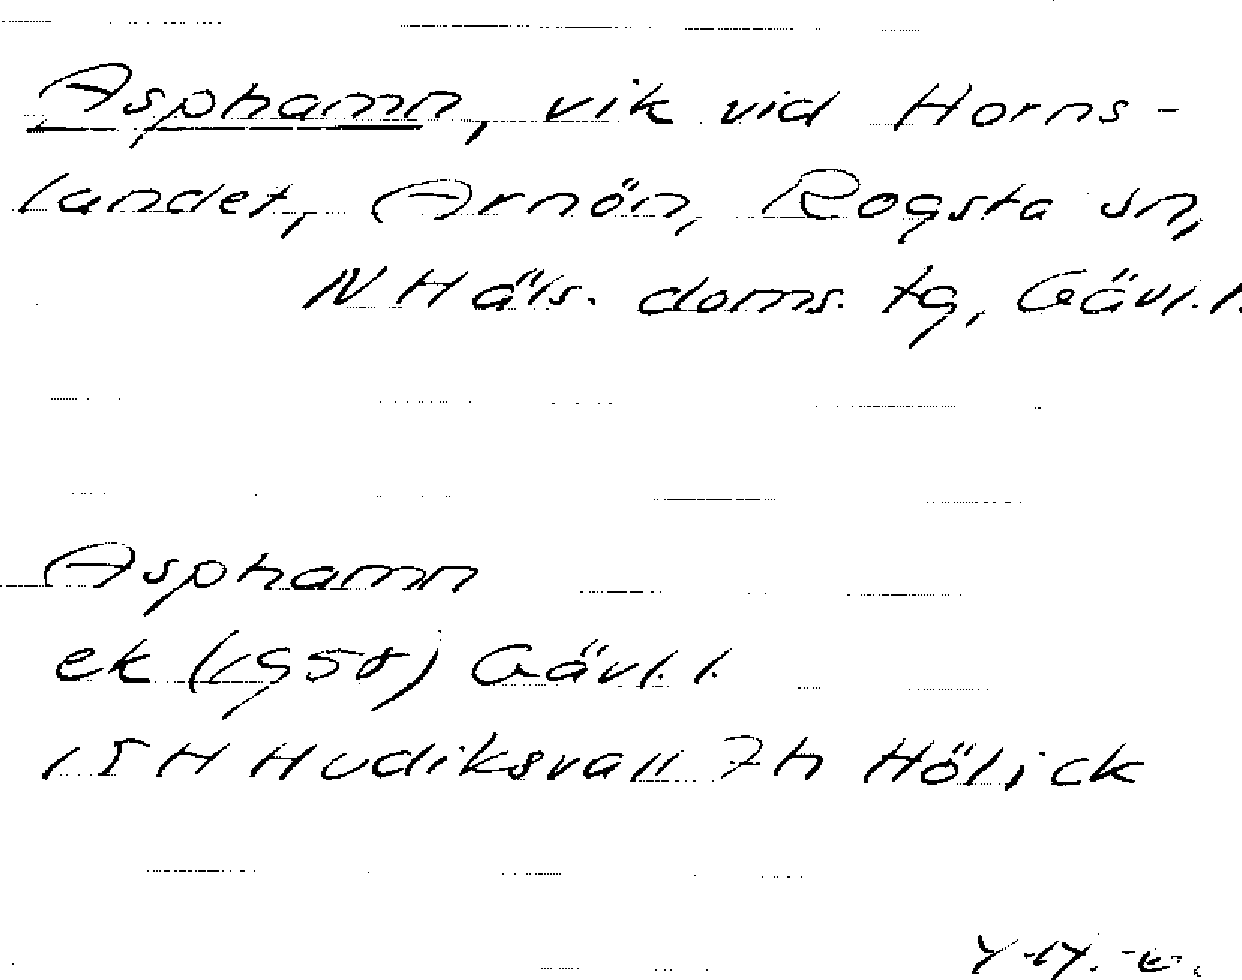 Asphamn, vik vid Horns-
landet, Arnön, Rogsta sn,
N Häls. doms. tg, Gävl. l.
Asphamn
ek (1958) Gävl. l.
15H Hudiksvall 7h Hölick